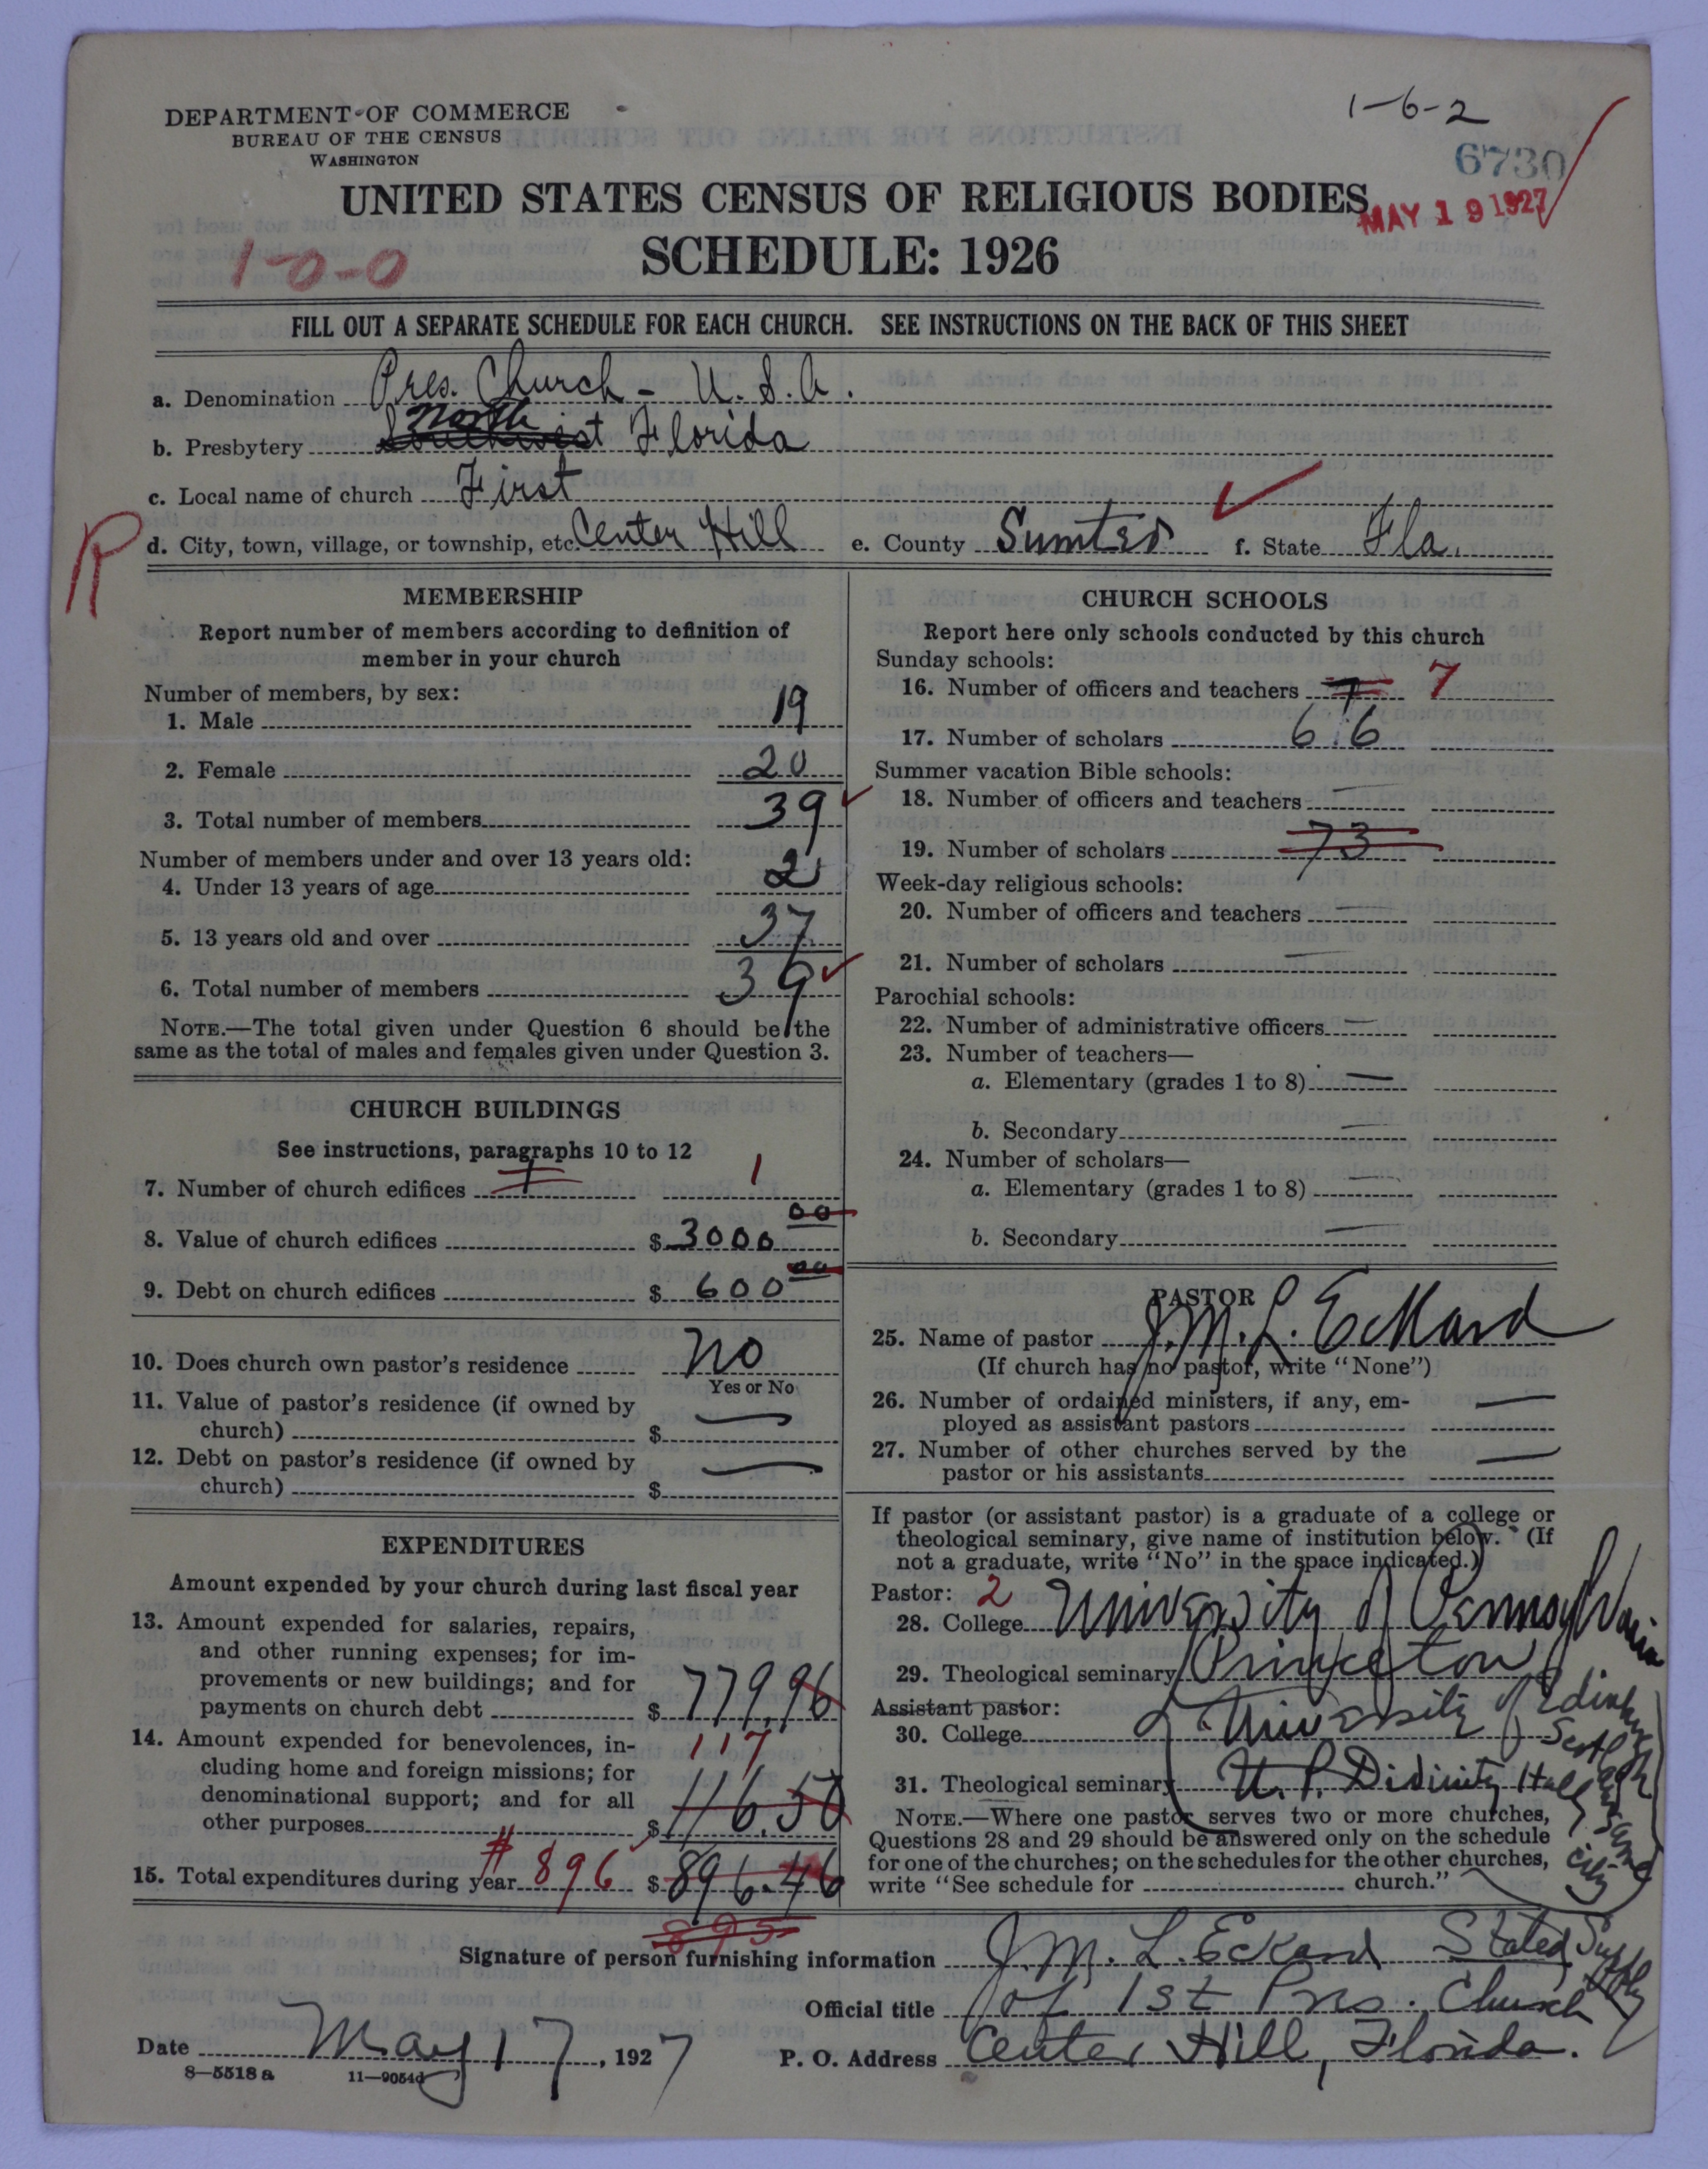 1-6-2
DEPARTMENT OF COMMERCE
BUREAU OF THE CENSUS
WASHINGTON
6730
UNITED STATES CENSUS OF RELIGIOUS BODIES
MAY 19 1927
SCHEDULE: 1926
1-0-0
FILL OUT A SEPARATE SCHEDULE FOR EACH CHURCH. SEE INSTRUCTIONS ON THE BACK OF THIS SHEET
a. Denomination Pres. Church - U.S.A.
North
b. Presbytery Southwest Florida
c. Local name of church First
R
d. City, town, village, or township, etc. Center Hill e. County Sumter f. State Fla.
MEMBERSHIP
Report number of members according to definition of
member in your church
Number of members, by sex:
1. Male 19
2. Female 20
3. Total number of members 39
Number of members under and over 13 years old:
4. Under 13 years of age 2
5. 13 years old and over 37
6. Total number of members 39
NOTE.—The total given under Question 6 should be the
same as the total of males and females given under Question 3.
CHURCH BUILDINGS
See instructions, paragraphs 10 to 12
7. Number of church edifices 1 1
8. Value of church edifices $ 3000 00
9. Debt on church edifices $ 600 00
10. Does church own pastor's residence No
Yes or No
11. Value of pastor's residence (if owned by
church) $ —
12. Debt on pastor's residence (if owned by
church) $ —
EXPENDITURES
Amount expended by your church during last fiscal year
13. Amount expended for salaries, repairs,
and other running expenses; for im-
provements or new buildings; and for
payments on church debt $ 779.96
14. Amount expended for benevolences, in-
117
cluding home and foreign missions; for
denominational support; and for all
other purposes $ 116.50
15. Total expenditures during year # 896 $ 896.46
895
CHURCH SCHOOLS
Report here only schools conducted by this church
Sunday schools:
16. Number of officers and teachers 7 7
17. Number of scholars 66
Summer vacation Bible schools:
18. Number of officers and teachers —
19. Number of scholars 73
Week-day religious schools:
20. Number of officers and teachers —
21. Number of scholars —
Parochial schools:
22. Number of administrative officers —
23. Number of teachers—
a. Elementary (grades 1 to 8) —
b. Secondary —
24. Number of scholars—
a. Elementary (grades 1 to 8) —
b. Secondary —
PASTOR
25. Name of pastor J. M. L. Eckard
(If church has no pastor, write "None")
26. Number of ordained ministers, if any, em-
ployed as assistant pastors —
27. Number of other churches served by the
pastor or his assistants —
If pastor (or assistant pastor) is a graduate of a college or
theological seminary, give name of institution below. (If
not a graduate, write "No" in the space indicated.)
Pastor: 2
28. College University of Pennsylvania
29. Theological seminary Princeton
Assistant pastor:
30. College & University of Edinburgh Scotland
31. Theological seminary U. P. Divinity Hall same city
NOTE.—Where one pastor serves two or more churches,
Questions 28 and 29 should be answered only on the schedule
for one of the churches; on the schedules for the other churches,
write "See schedule for church."
Signature of person furnishing information J. M. L. Eckard Stated Supply
Official title of 1st Pres. Church
Date May 17, 1927
P. O. Address Center Hill, Florida.
8—5518 a 11—9054d